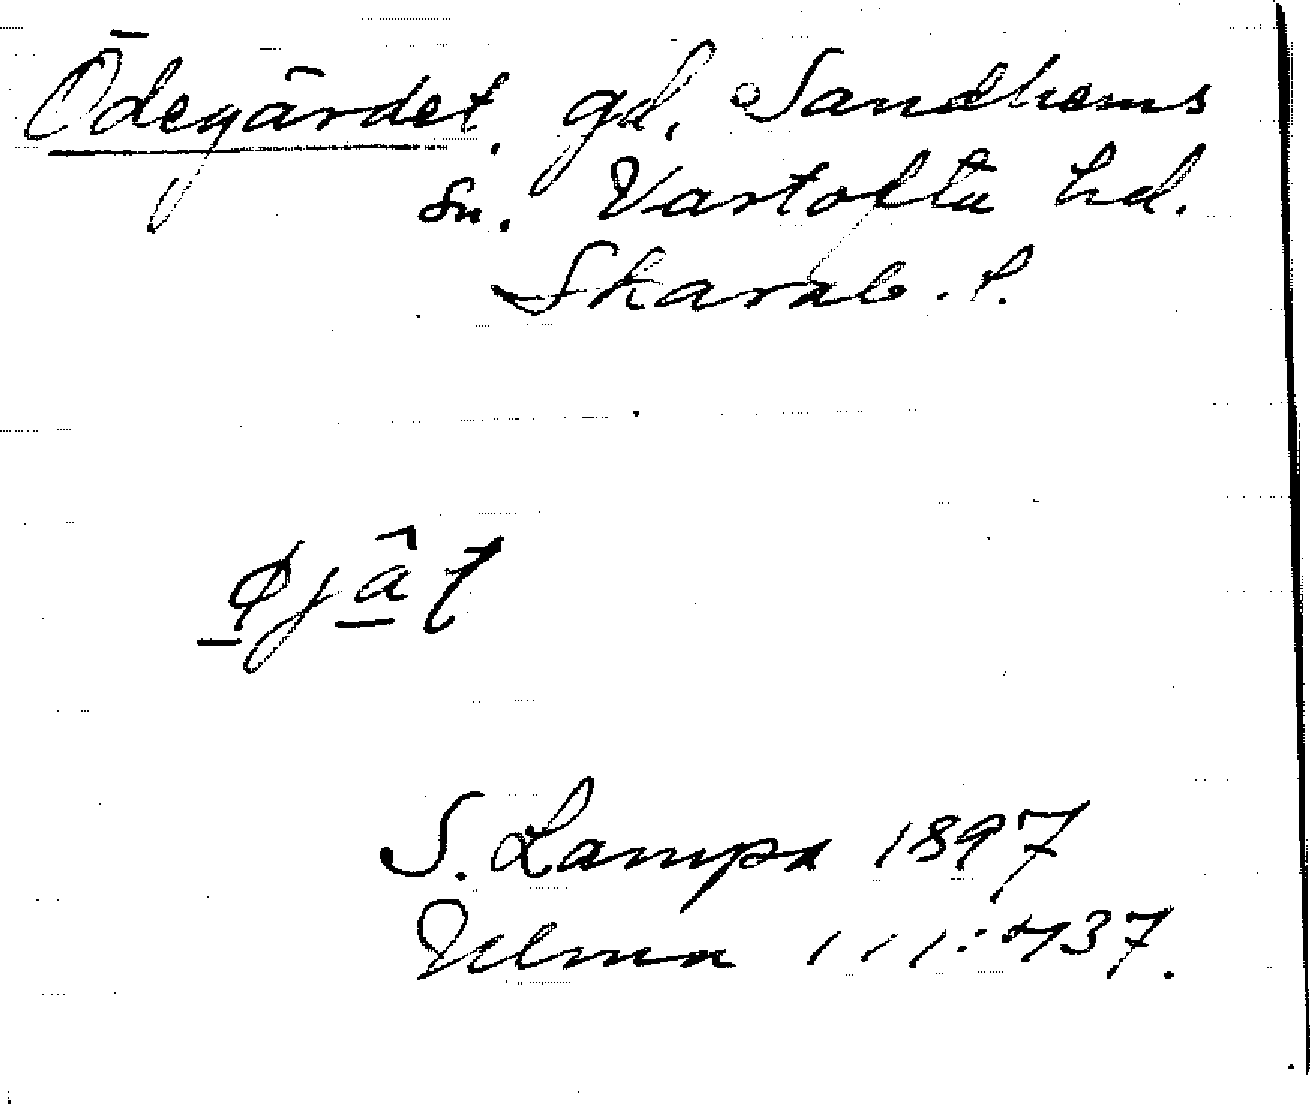 Ödegärdet. gd. Sandhems
sn. Vartofta hd.
Skarab. l.
S. Lampa 1897
Ulma 111:437.